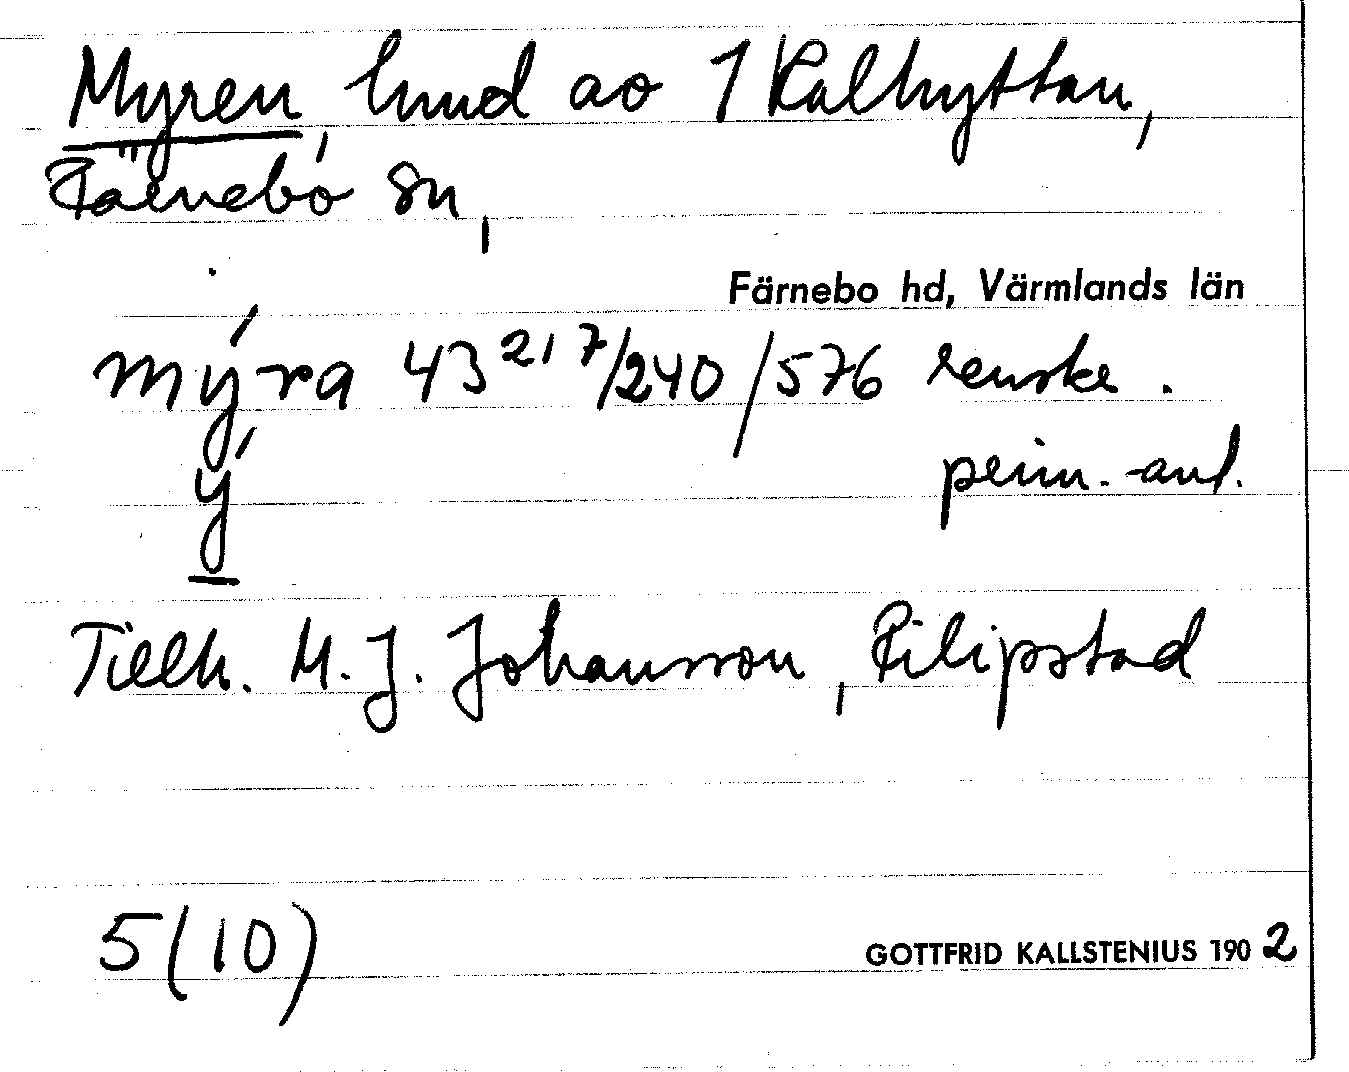 Myren, hmd av 1 Kalhyttan,
Färnebo sn,
Färnebo hd, Värmlands län
mý̄ra 43 21/7/240/576 renske.
ý penn.-ant.
Tillh. M. J. Johansson, Filipstad
5(10)
GOTTFRID KALLSTENIUS 1902